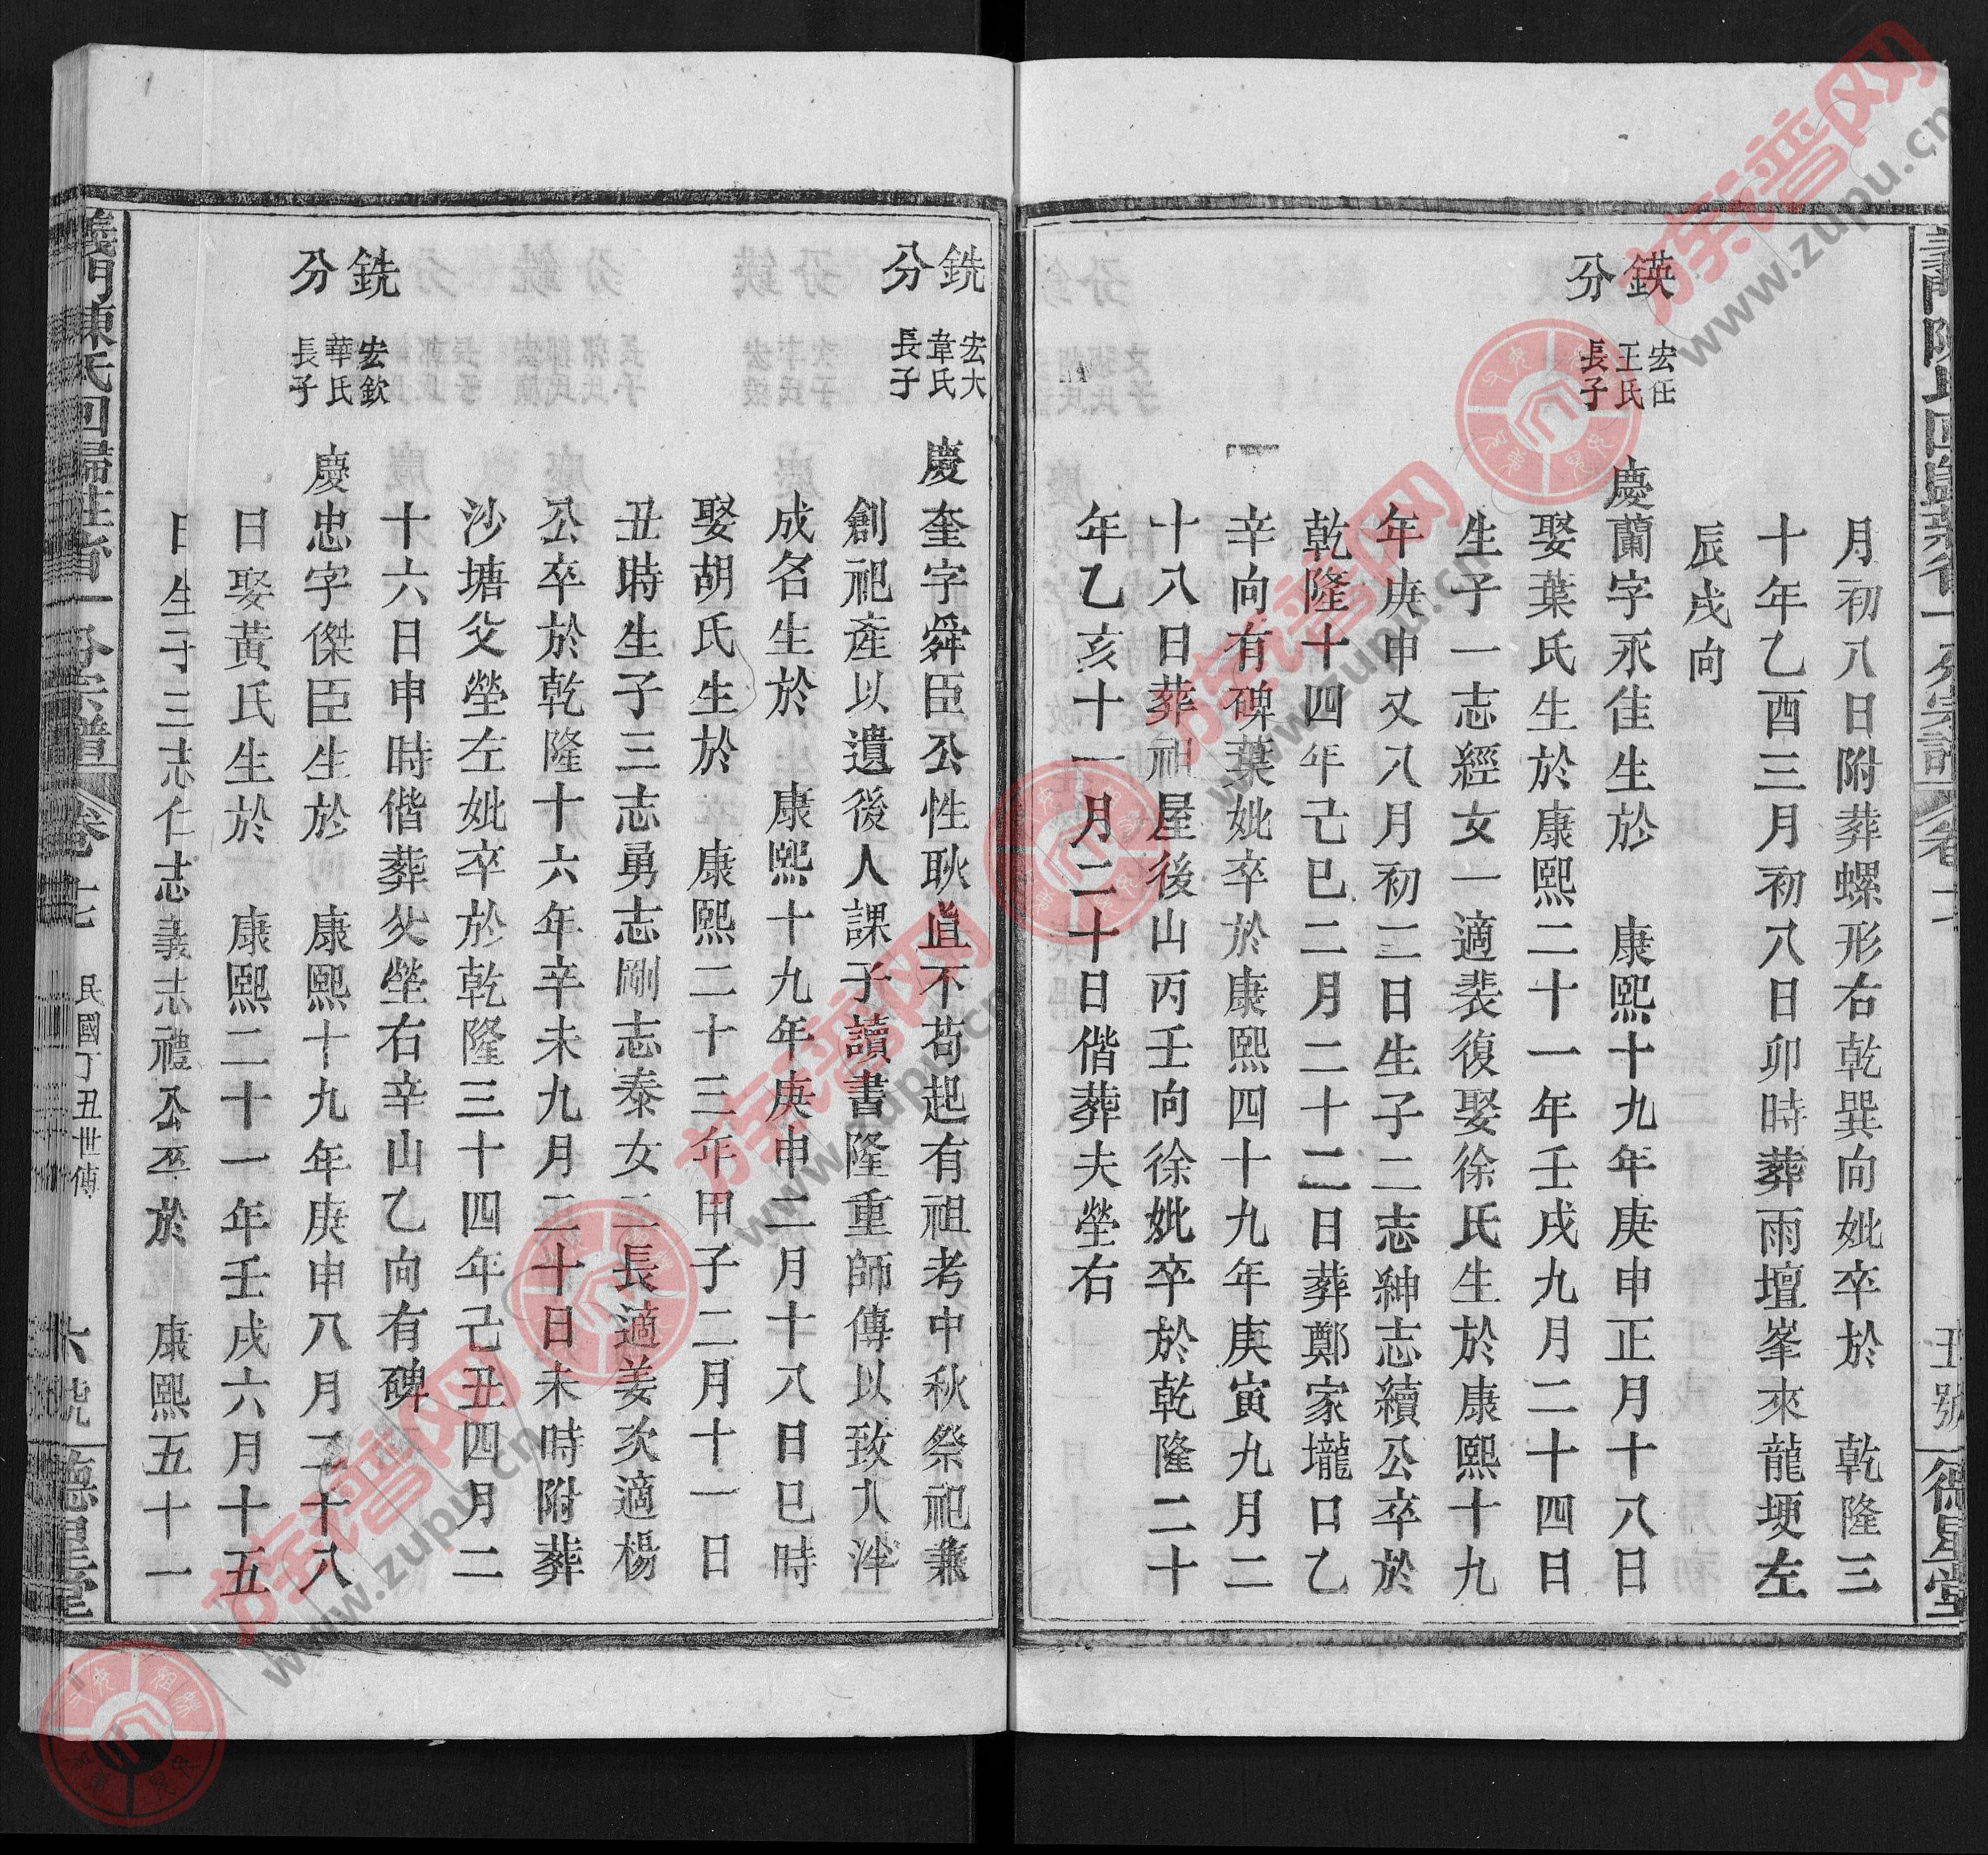 月初八日附葬螺形右乾巽向妣卒於　乾隆三
十年乙酉三月初八日卯時葬雨壇峯來龍埂左
辰戌向
鍈分
宏任
王氏
長子
慶蘭字永佳生於　康熙十九年庚申正月十八日
娶葉氏生於康熙二十一年壬戌九月二十四日
生子一志經女一適裴復娶徐氏生於康熙十九
年庚申又八月初二日生子二志紳志續公卒於
乾隆十四年己巳二月二十二日葬鄭家壠口乙
辛向有碑葉妣卒於康熙四十九年庚寅九月二
十八日葬祖屋後山丙壬向徐妣卒於乾隆二十
年乙亥十一月二十日偕葬夫塋右
銑分
宏大
韋氏
長子
慶奎字舜臣公性耿直不苟起有祖考中秋祭祀兼
創祀產以遺後人課子讀書隆重師傳以致入泮
成名生於　康熙十九年庚申二月十八日巳時
娶胡氏生於　康熙二十三年甲子二月十一日
丑時生子三志勇志剛志泰女二長適姜次適楊
公卒於乾隆十六年辛未九月二十日未時附葬
沙塘父塋左妣卒於乾隆三十四年己丑四月二
十六日申時偕葬夫塋右辛山乙向有碑
銑分
宏欽
華氏
長子
慶忠字傑臣生於　康熙十九年庚申八月二十八
日娶黃氏生於　康熙二十一年壬戌六月十五
日生子三志仁志義志禮公卒於　康熙五十一
義門陳氏回歸莊省一分宗譜
卷十七
民國丁丑世傳
六號
德星堂
五號
德星堂
族谱网
www.zupu.cn
族谱网
www.zupu.cn
族谱网
www.zupu.cn
族谱网
www.zupu.cn